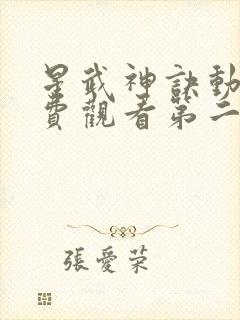 星武神訣動
費觀看第二
張愛榮